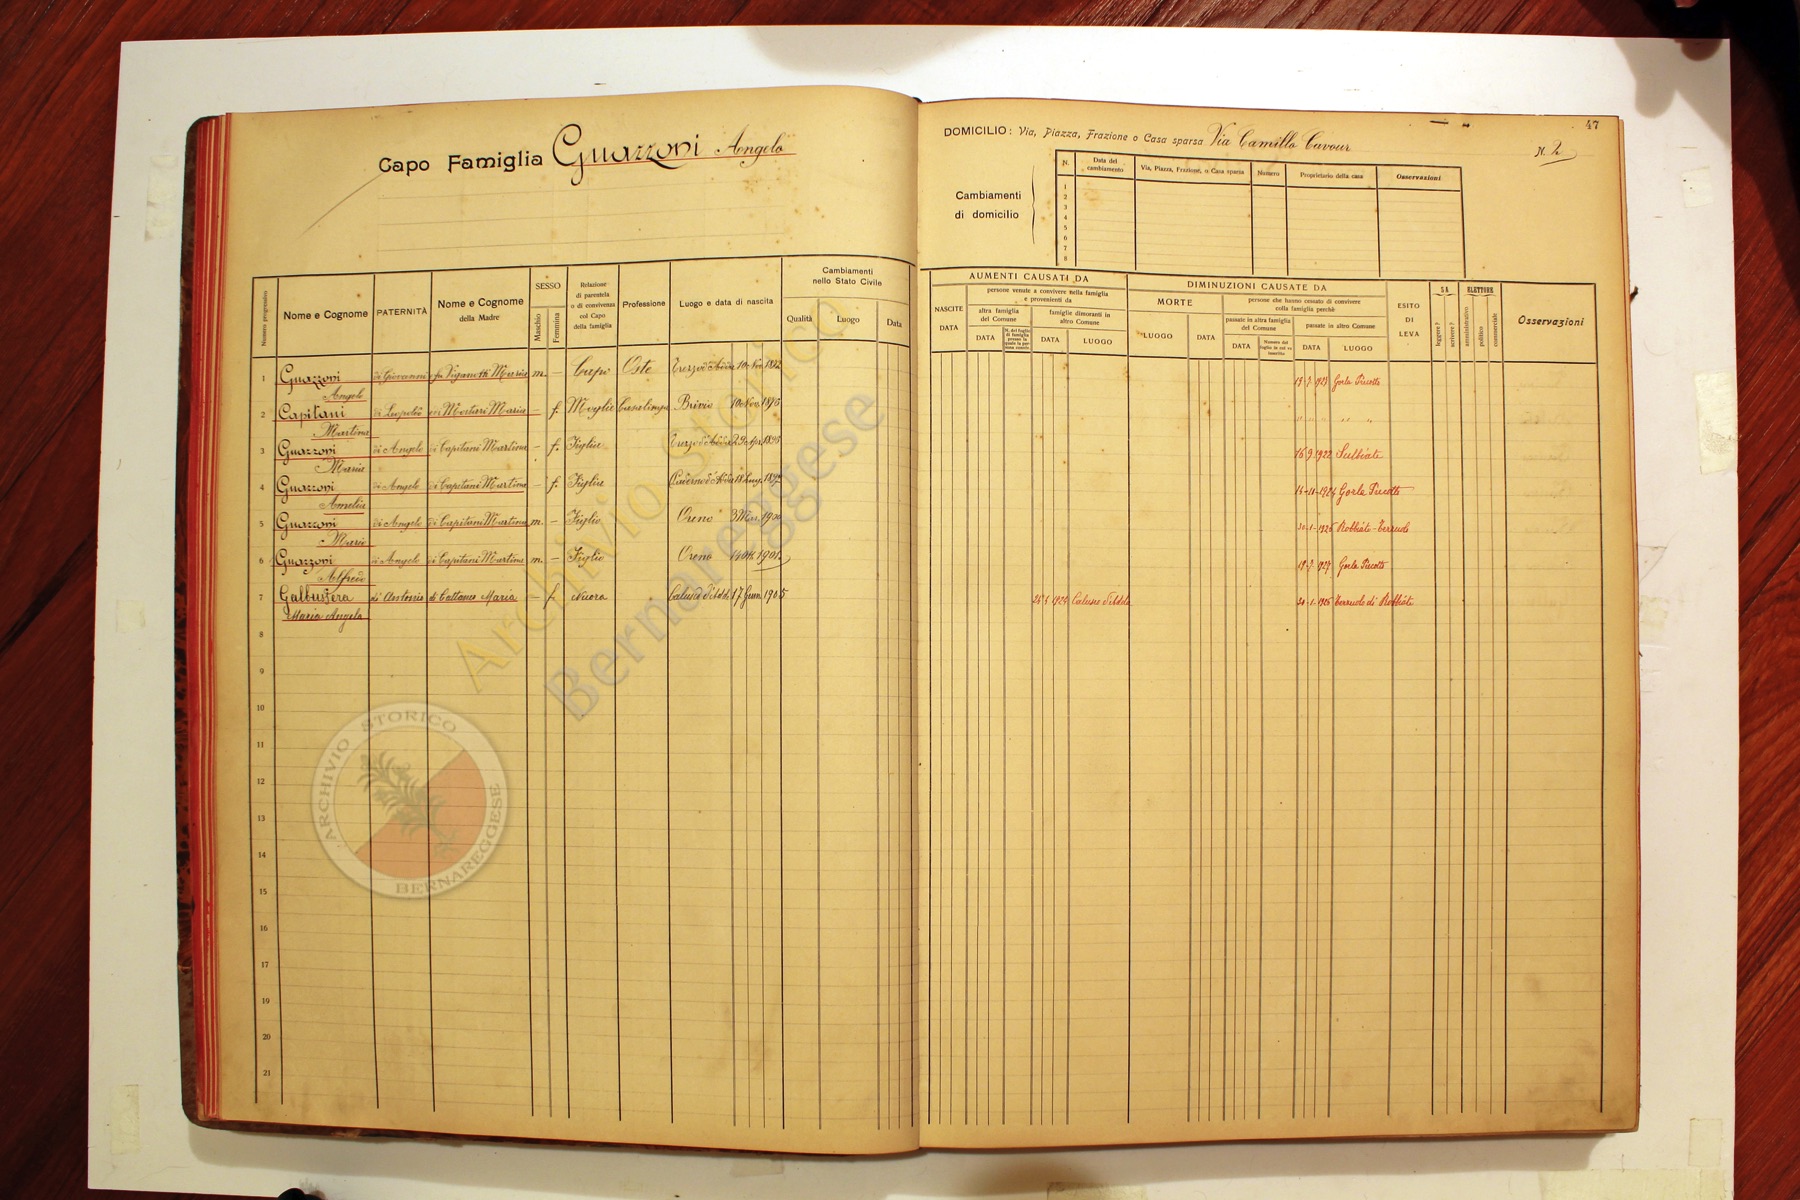 Capo Famiglia Guazzoni Angelo
Numero progressivo
Nome e Cognome
PATERNITÀ
Nome e Cognome
della Madre
SESSO
Maschio
Femmina
Relazione
di parentela
o di convivenza
col Capo
della famiglia
Professione
Luogo e data di nascita
Cambiamenti
nello Stato Civile
Qualità
Luogo
Data
1 Guazzoni di Giovanni fu Viganotti Maria m. – Capo Oste Trezzo d'Adda 10 Nov. 1872
Angelo
2 Capitani di Leopoldo Maria – f. Moglie Casalinga Brivio 10 Nov. 1873
Martina
3 Guazzoni di Angelo di Capitani Martina – f. Figlia Trezzo d'Adda
Maria
4 Guazzoni di Angelo di Capitani Martina – f. Figlia
Amelia
5 Guazzoni di Angelo di Capitani Martina m. – Figlio Oreno 3 Mar. 1900
Mario
6 Guazzoni di Angelo di Capitani Martina m. – Figlio Oreno 1901
Alfredo
7 Galbussera di Antonio di Cattaneo Maria – f. Nuora 17 Giu. 1905
Maria Angela
8
9
10
11
12
13
14
15
16
17
19
20
21
47
DOMICILIO: Via, Piazza, Frazione o Casa sparsa Via Camillo Cavour N. 2
Cambiamenti
di domicilio
N.
Data del
cambiamento
Via, Piazza, Frazione, o Casa sparsa
Numero
Proprietario della casa
Osservazioni
1
2
3
4
5
6
7
8
AUMENTI CAUSATI DA
NASCITE
DATA
persone venute a convivere nella famiglia
e provenienti da
altra famiglia
del Comune
DATA
N. del foglio
di famiglia
presso la
quale la per-
famiglie dimoranti in
altro Comune
DATA
LUOGO
DIMINUZIONI CAUSATE DA
MORTE
LUOGO
DATA
persone che hanno cessato di convivere
colla famiglia perchè
passate in altra famiglia
del Comune
DATA
Numero del
foglio in cui va
inscritto
passate in altro Comune
DATA
LUOGO
ESITO
DI
LEVA
SA
leggere?
scrivere?
ELETTORE
amministrativo
politico
commerciale
Osservazioni
Gorla
" " " "
16-9-1922 Sulbiate
Gorla
30-1-1926 Robbiate-Verrudo
Gorla
30-1-1926 di Robbiate
Archivio Storico
Bernareggese
ARCHIVIO STORICO
BERNAREGGESE